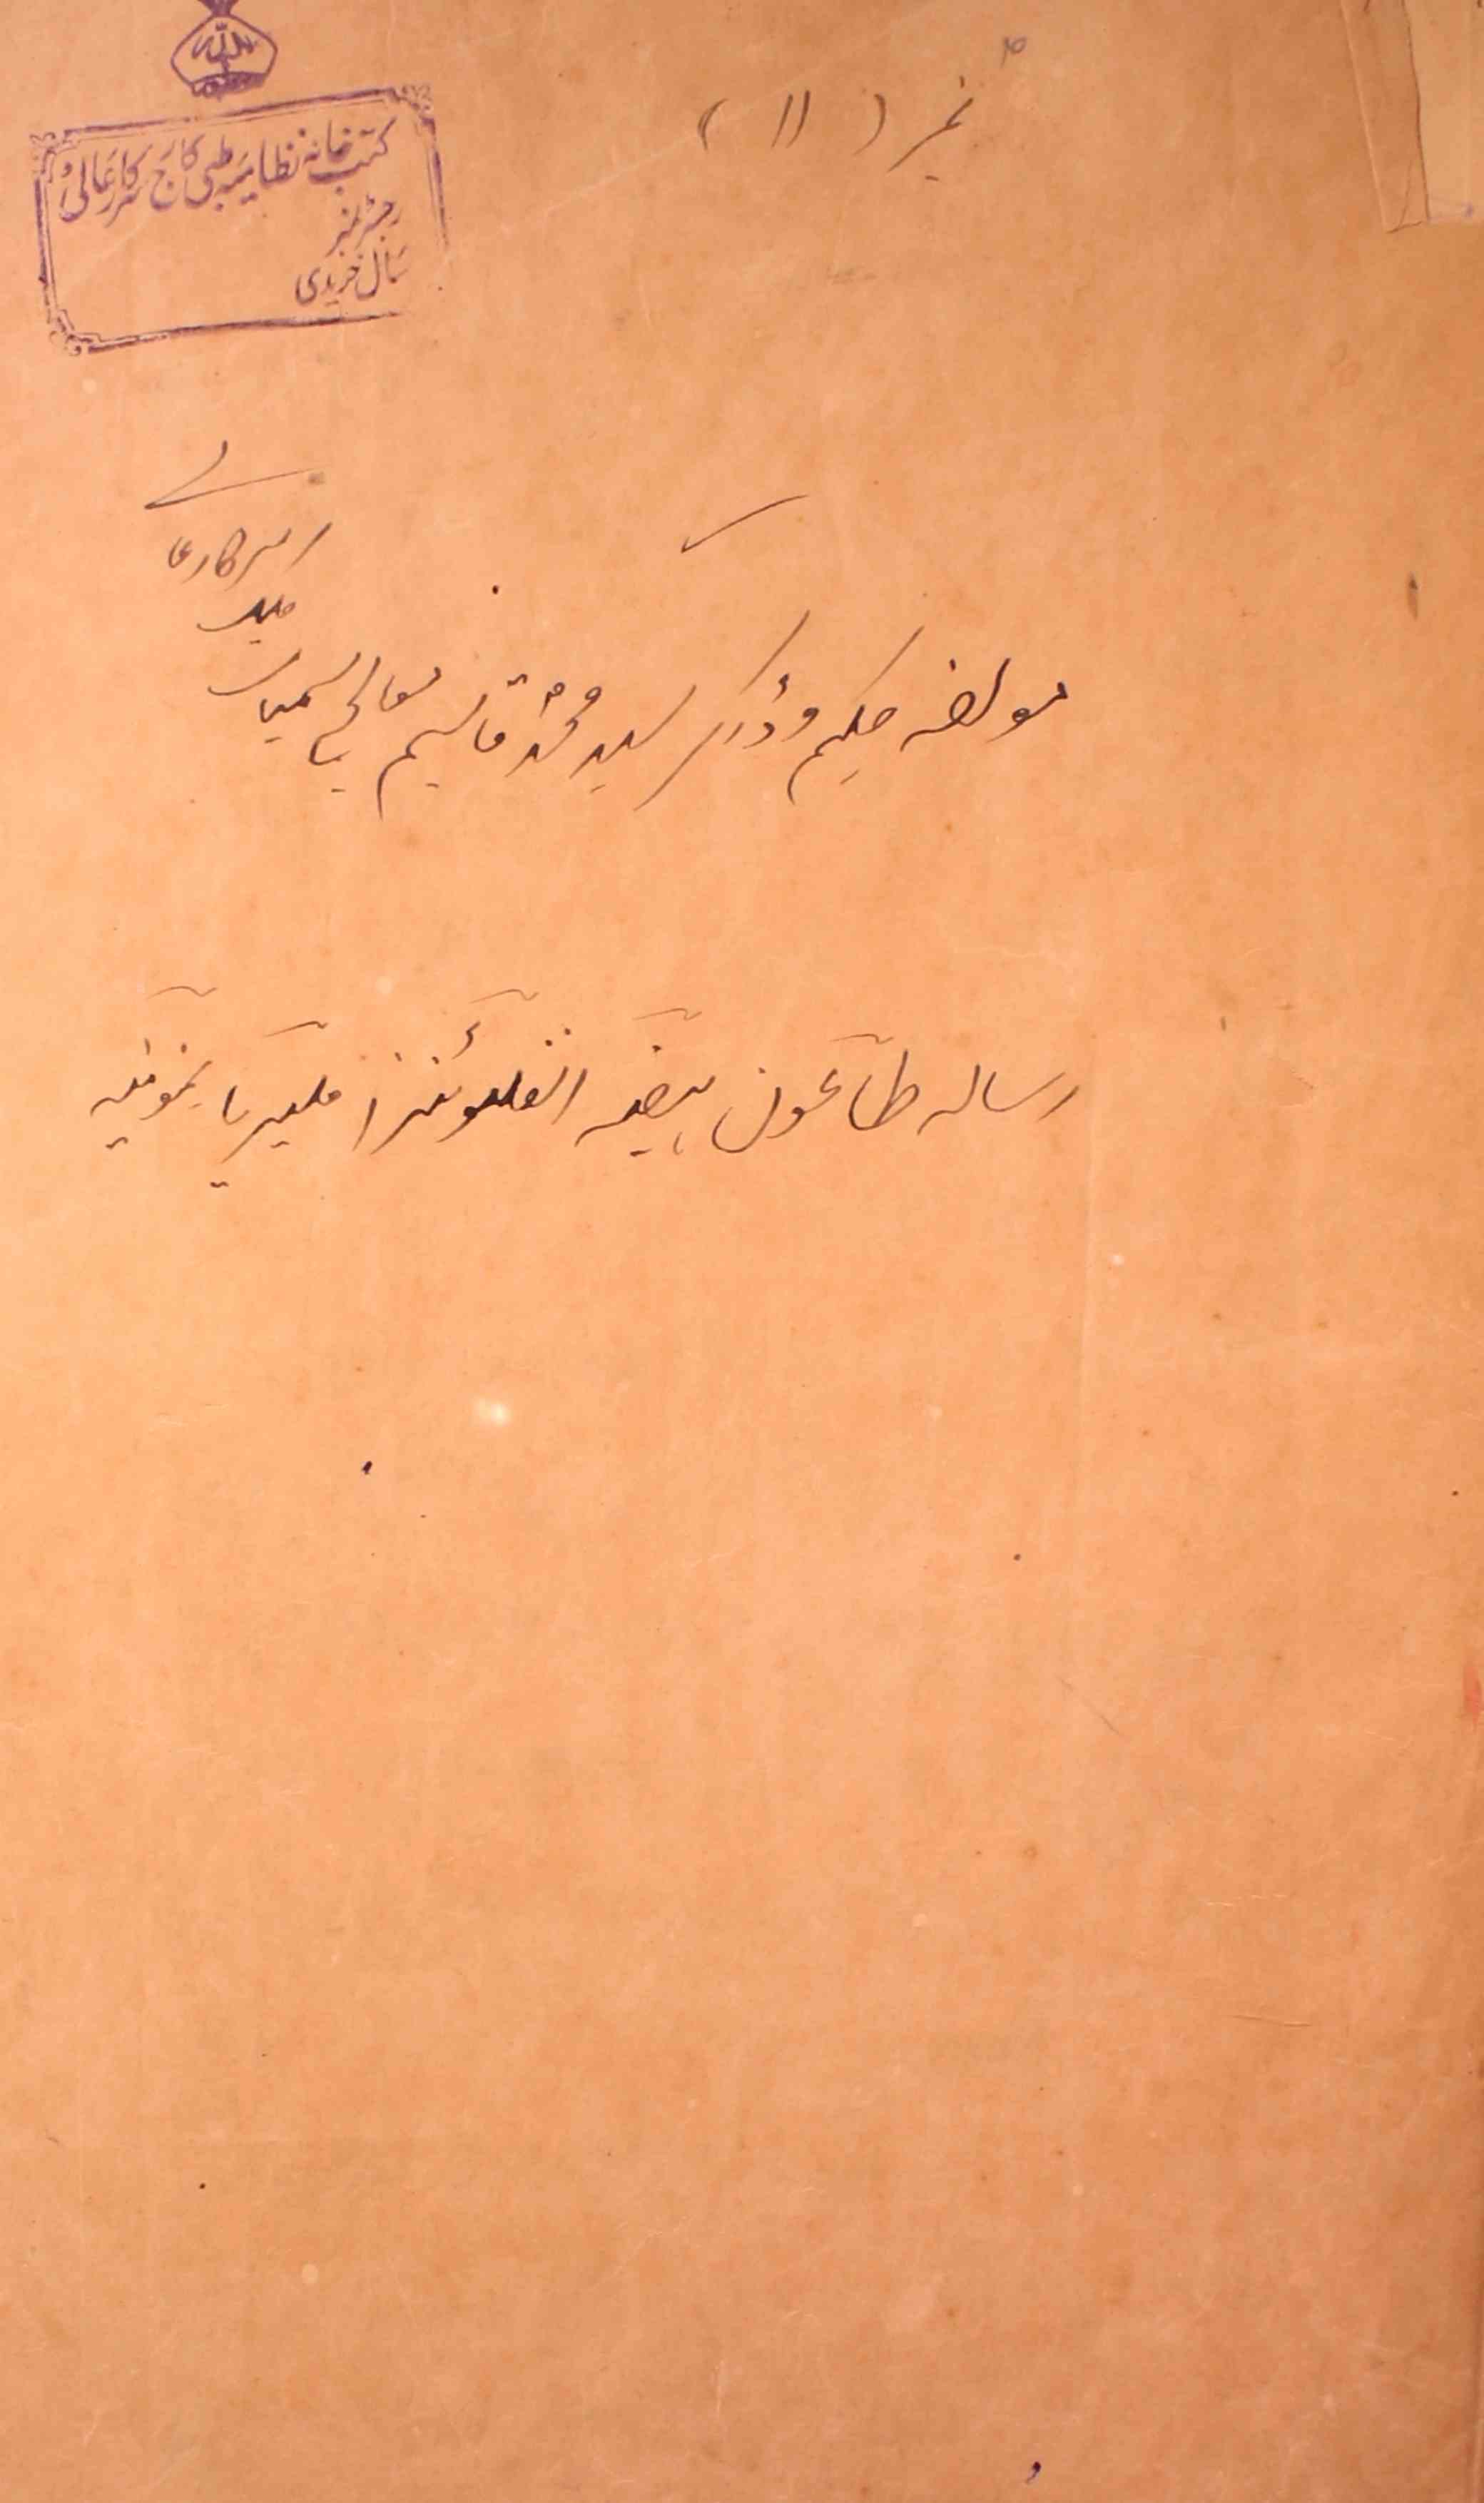 نمبر (۱۱)
اللہ
کتب خانہ نظامیہ طبی کالج سرکار عالی
رجسٹر نمبر
سال خریدی
سرکار عالے
مولفہ حکیم وڈاکٹر سید محمد قاسم معالج سمیات
رسالہ طاعون ہیضہ انفلوئنزا ملیریا نمونیہ